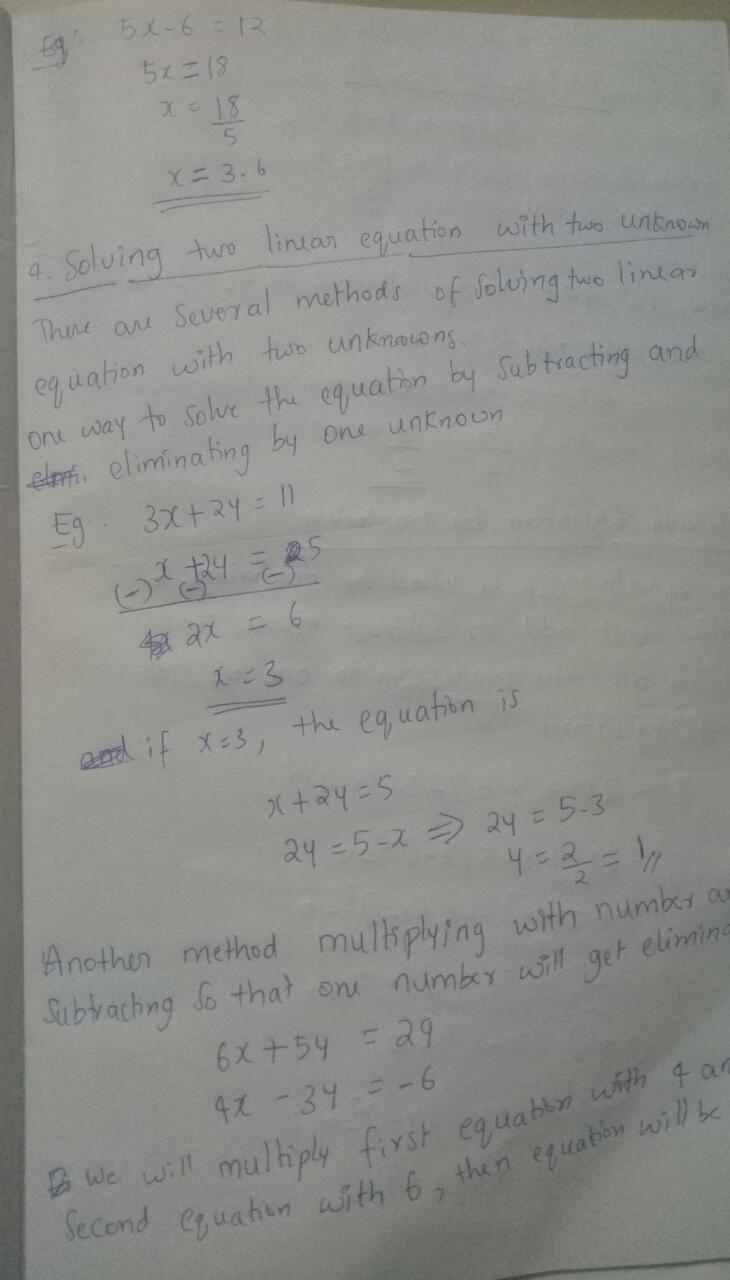 Eg: 5x-6 = 12
5x = 18
x = 18/5
x = 3.6
4. Solving two linear equation with two unknown
There are several methods of solving two linear
equation with two unknowns.
one way to solve the equation by subtracting and
eliminating by one unknown
Eg:. 3x+2y = 11
(-) x +2y = 5
(-) (-)
2x = 6
x = 3
if x=3, the equation is
x+2y=5
2y = 5-x ⇒ 2y = 5-3
y = 2/2 = 1//
Another method multiplying with number a
Subtracting so that one number will get elimina
6x+5y = 29
4x - 3y = -6
We will multiply first equation with 4 an
Second equation with 6, then equation will be